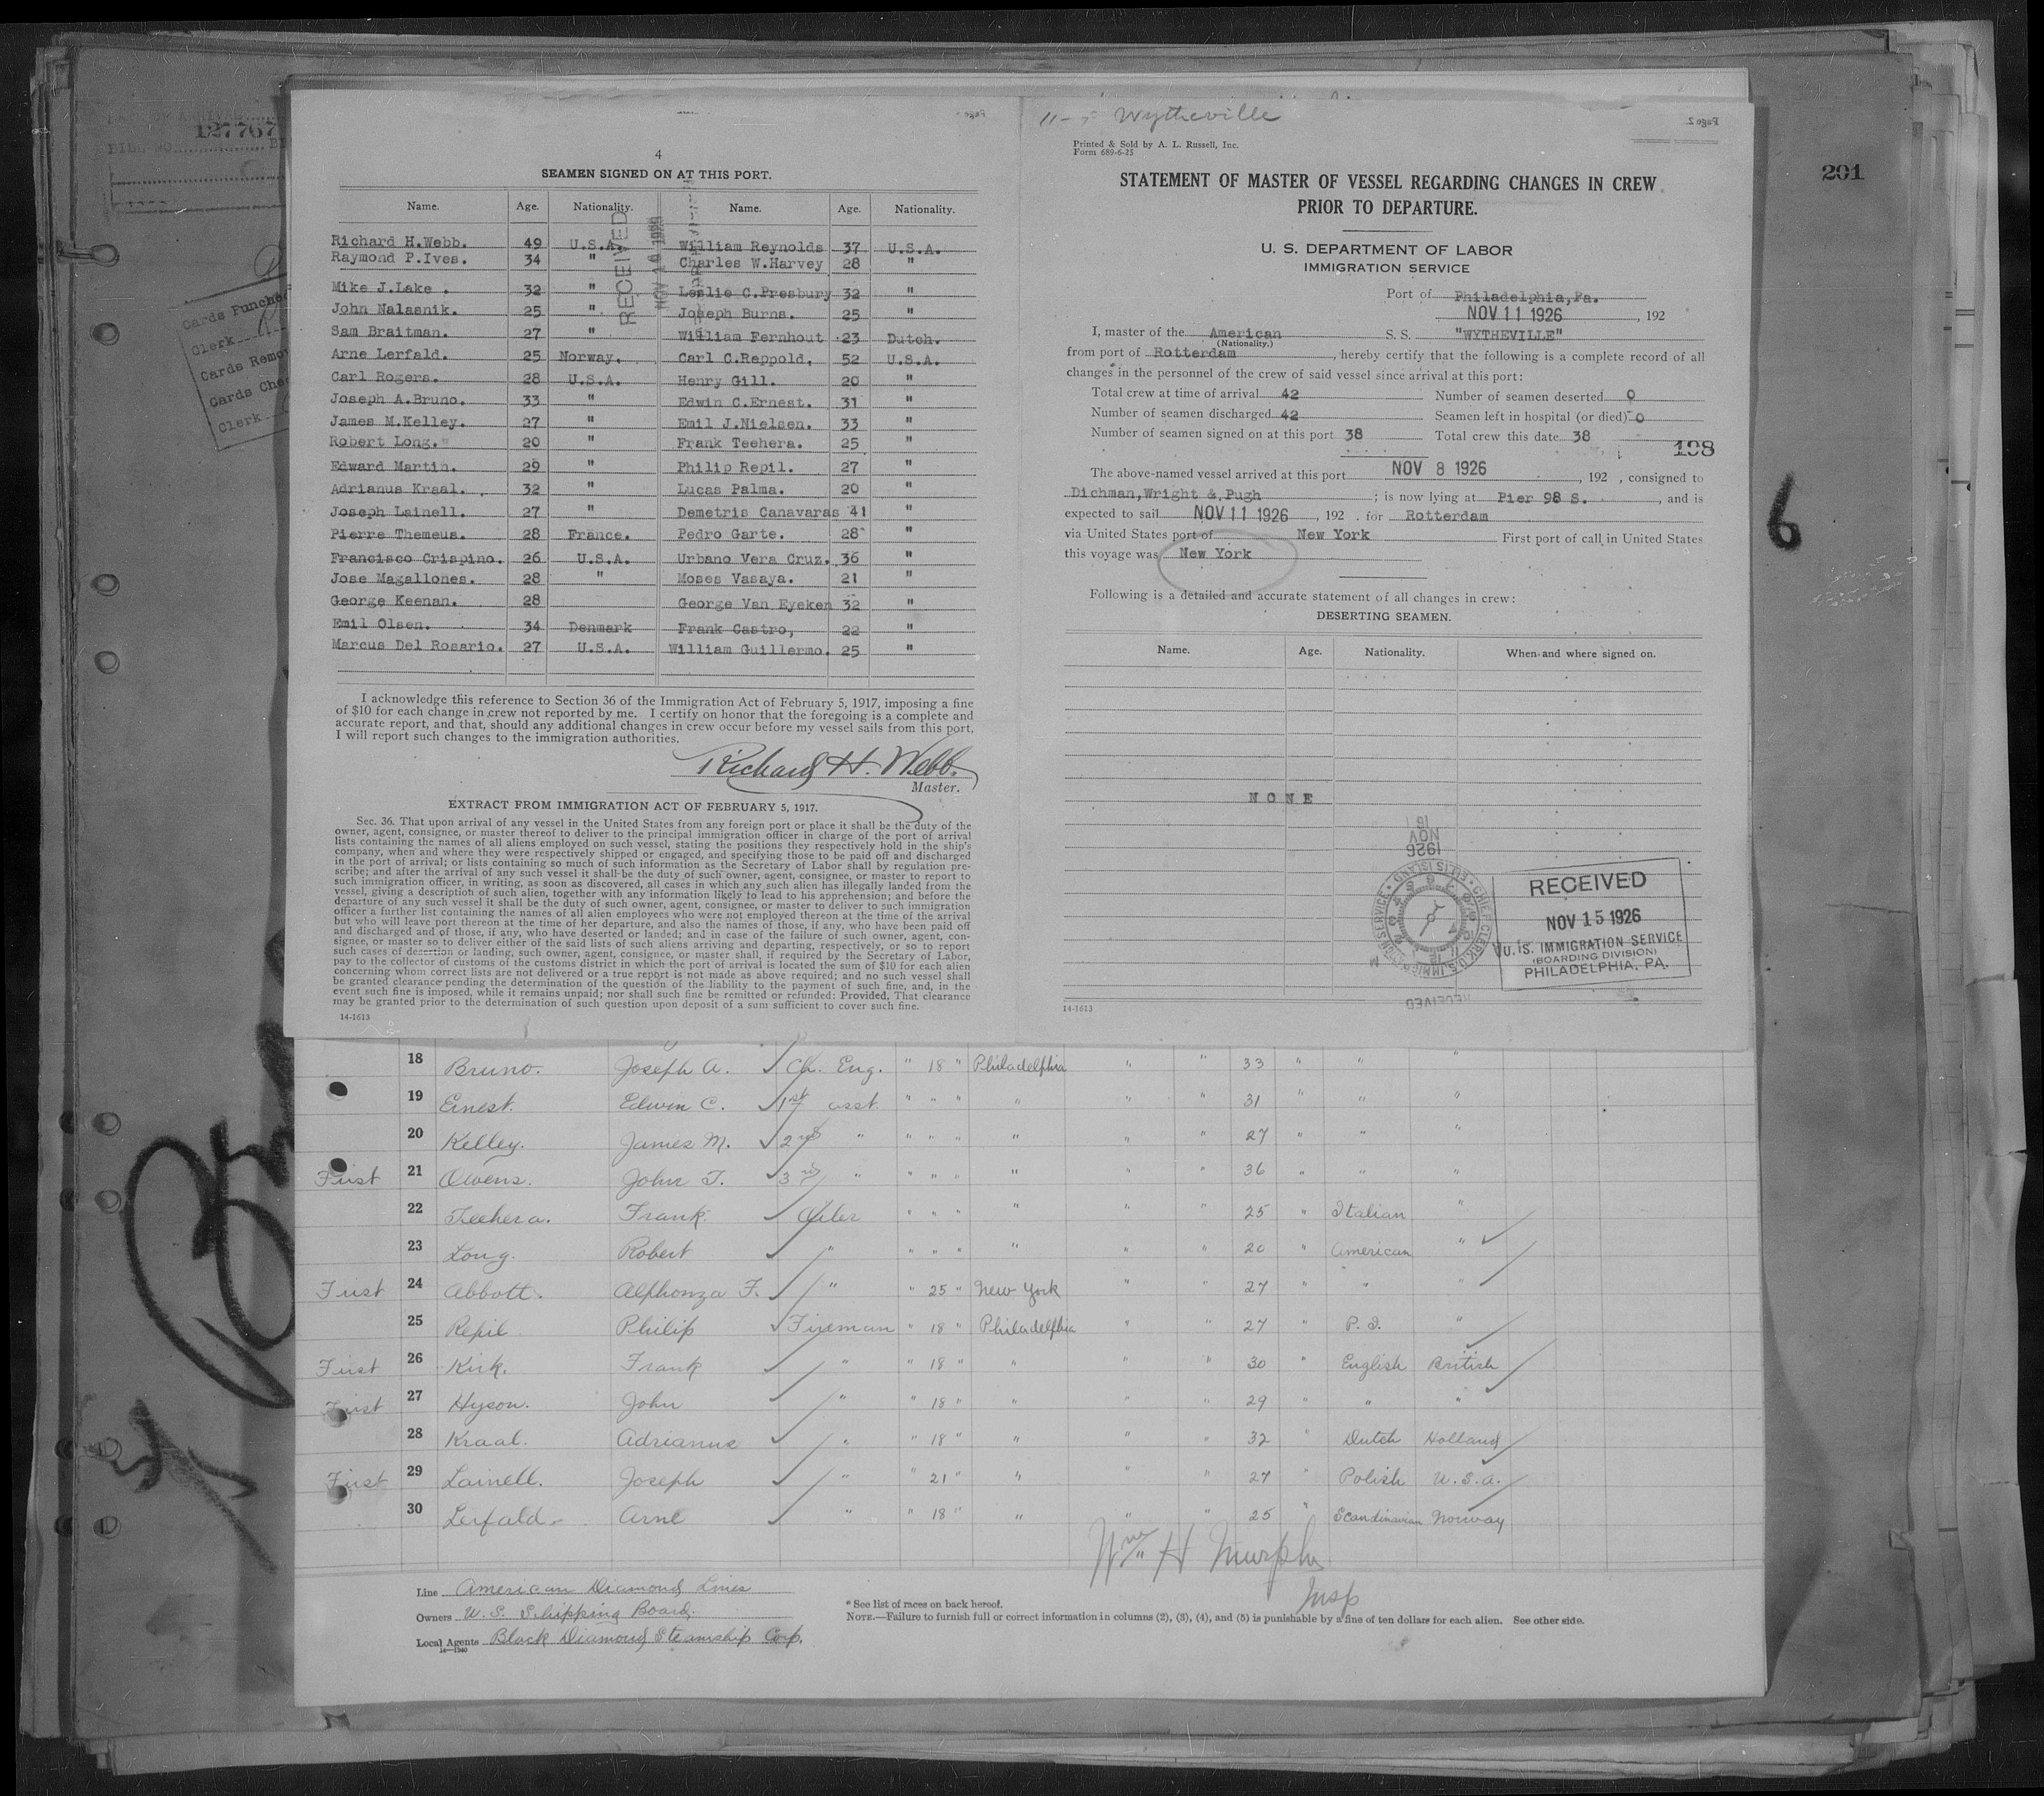 127767
BILL NO.
Cards Punched
Clerk
Cards Remov
Cards Chec
Clerk
4
SEAMEN SIGNED ON AT THIS PORT.
Name. Age. Nationality. Name. Age. Nationality.
Richard H.Webb. 49 U.S.A. William Reynolds 37 U.S.A.
Raymond P.Ives. 34 " Charles W.Harvey 28 "
Mike J.Lake . 32 " Leslie C.Presbury 32 "
John Nalasnik. 25 " Joseph Burns. 25 "
Sam Braitman. 27 " William Fernhout 23 Dutch.
Arne Lerfald. 25 Norway. Carl C.Reppold, 52 U.S.A.
Carl Rogers. 28 U.S.A. Henry Gill. 20 "
Joseph A.Bruno. 33 " Edwin C.Ernest. 31 "
James M.Kelley. 27 " Emil J.Nielsen. 33 "
Robert Long. 20 " Frank Teehera. 25 "
Edward Martin. 29 " Philip Repil. 27 "
Adrianus Kraal. 32 " Lucas Palma. 20 "
Joseph Lainell. 27 " Demetris Canavaras 41 "
Pierre Themeus. 28 France. Pedro Garte. 28 "
Francisco Crispino. 26 U.S.A. Urbano Vera Cruz. 36 "
Jose Magallones. 28 " Moses Vasaya. 21 "
George Keenan. 28 George Van Eyeken 32 "
Emil Olsen. 34 Denmark Frank Castro, 22 "
Marcus Del Rosario. 27 U.S.A. William Guillermo. 25 "
RECEIVED
I acknowledge this reference to Section 36 of the Immigration Act of February 5, 1917, imposing a fine
of $10 for each change in crew not reported by me. I certify on honor that the foregoing is a complete and
accurate report, and that, should any additional changes in crew occur before my vessel sails from this port,
I will report such changes to the immigration authorities.
Richard H. Webb.
Master.
EXTRACT FROM IMMIGRATION ACT OF FEBRUARY 5, 1917.
Sec. 36. That upon arrival of any vessel in the United States from any foreign port or place it shall be the duty of the
owner, agent, consignee, or master thereof to deliver to the principal immigration officer in charge of the port of arrival
lists containing the names of all aliens employed on such vessel, stating the positions they respectively hold in the ship's
company, when and where they were respectively shipped or engaged, and specifying those to be paid off and discharged
in the port of arrival; or lists containing so much of such information as the Secretary of Labor shall by regulation pre-
scribe; and after the arrival of any such vessel it shall be the duty of such owner, agent, consignee, or master to report to
such immigration officer, in writing, as soon as discovered, all cases in which any such alien has illegally landed from the
vessel, giving a description of such alien, together with any information likely to lead to his apprehension; and before the
departure of any such vessel it shall be the duty of such owner, agent, consignee, or master to deliver to such immigration
officer a further list containing the names of all alien employees who were not employed thereon at the time of the arrival
but who will leave port thereon at the time of her departure, and also the names of those, if any, who have been paid off
and discharged and of those, if any, who have deserted or landed; and in case of the failure of such owner, agent, con-
signee, or master so to deliver either of the said lists of such aliens arriving and departing, respectively, or so to report
such cases of desertion or landing, such owner, agent, consignee, or master shall, if required by the Secretary of Labor,
pay to the collector of customs of the customs district in which the port of arrival is located the sum of $10 for each alien
concerning whom correct lists are not delivered or a true report is not made as above required; and no such vessel shall
be granted clearance pending the determination of the question of the liability to the payment of such fine, and, in the
event such fine is imposed, while it remains unpaid; nor shall such fine be remitted or refunded: Provided, That clearance
may be granted prior to the determination of such question upon deposit of a sum sufficient to cover such fine.
14-1613
Wytheville
Page 2
Printed & Sold by A. L. Russell, Inc.
Form 689-6-25
STATEMENT OF MASTER OF VESSEL REGARDING CHANGES IN CREW
PRIOR TO DEPARTURE.
U. S. DEPARTMENT OF LABOR
IMMIGRATION SERVICE
Port of Philadelphia,Pa.
NOV 11 1926 , 192
I, master of the American S. S. "WYTHEVILLE"
(Nationality.)
from port of Rotterdam , hereby certify that the following is a complete record of all
changes in the personnel of the crew of said vessel since arrival at this port:
Total crew at time of arrival 42 Number of seamen deserted 0
Number of seamen discharged 42 Seamen left in hospital (or died) 0
Number of seamen signed on at this port 38 Total crew this date 38
198
The above-named vessel arrived at this port NOV 8 1926 , 192 , consigned to
Dichman,Wright & Pugh ; is now lying at Pier 98 S. , and is
expected to sail NOV 11 1926 , 192 . for Rotterdam
via United States port of New York First port of call in United States
this voyage was New York
Following is a detailed and accurate statement of all changes in crew:
DESERTING SEAMEN.
Name. Age. Nationality. When and where signed on.
NONE
1926
NOV
16
CHIEF CLERK U.S. IMMIGRATION SERVICE ELLIS ISLAND
RECEIVED
RECEIVED
NOV 15 1926
U. S. IMMIGRATION SERVICE
(BOARDING DIVISION)
PHILADELPHIA, PA.
14-1613
201
6
18 Bruno. Joseph A. Ch. Eng. " 18 " Philadelphia " " 33 " " "
19 Ernest. Edwin C. 1st asst " " " " " " 31 " " "
20 Kelley. James M. 2nd " " " " " " " 27 " " "
First 21 Owens. John T. 3rd " " " " " " " 36 " " "
22 Teehera. Frank. Oiler " " " " " " 25 " Italian "
23 Long. Robert " " " " " " " 20 " American "
First 24 Abbott. Alphonza F. " " 25 " New York " " 27 " "
25 Repil Philip Fireman " 18 " Philadelphia " " 27 " P. I. "
First 26 Kirk. Frank " " 18 " " " " 30 " English British
First 27 Hyson. John " " 18 " " " " 29 " " "
28 Kraal. Adrianus " " 18 " " " " 32 " Dutch Holland
First 29 Lainell. Joseph " " 21 " " " " 27 " Polish U.S.A.
30 Lerfald. Arne " " 18 " " " " 25 " Scandinavian Norway
Wm H Murphy
Insp
Line American Diamond Lines
Owners U. S. Shipping Board.
Local Agents Black Diamond Steamship Corp.
14—1240
* See list of races on back hereof.
NOTE.—Failure to furnish full or correct information in columns (2), (3), (4), and (5) is punishable by a fine of ten dollars for each alien. See other side.